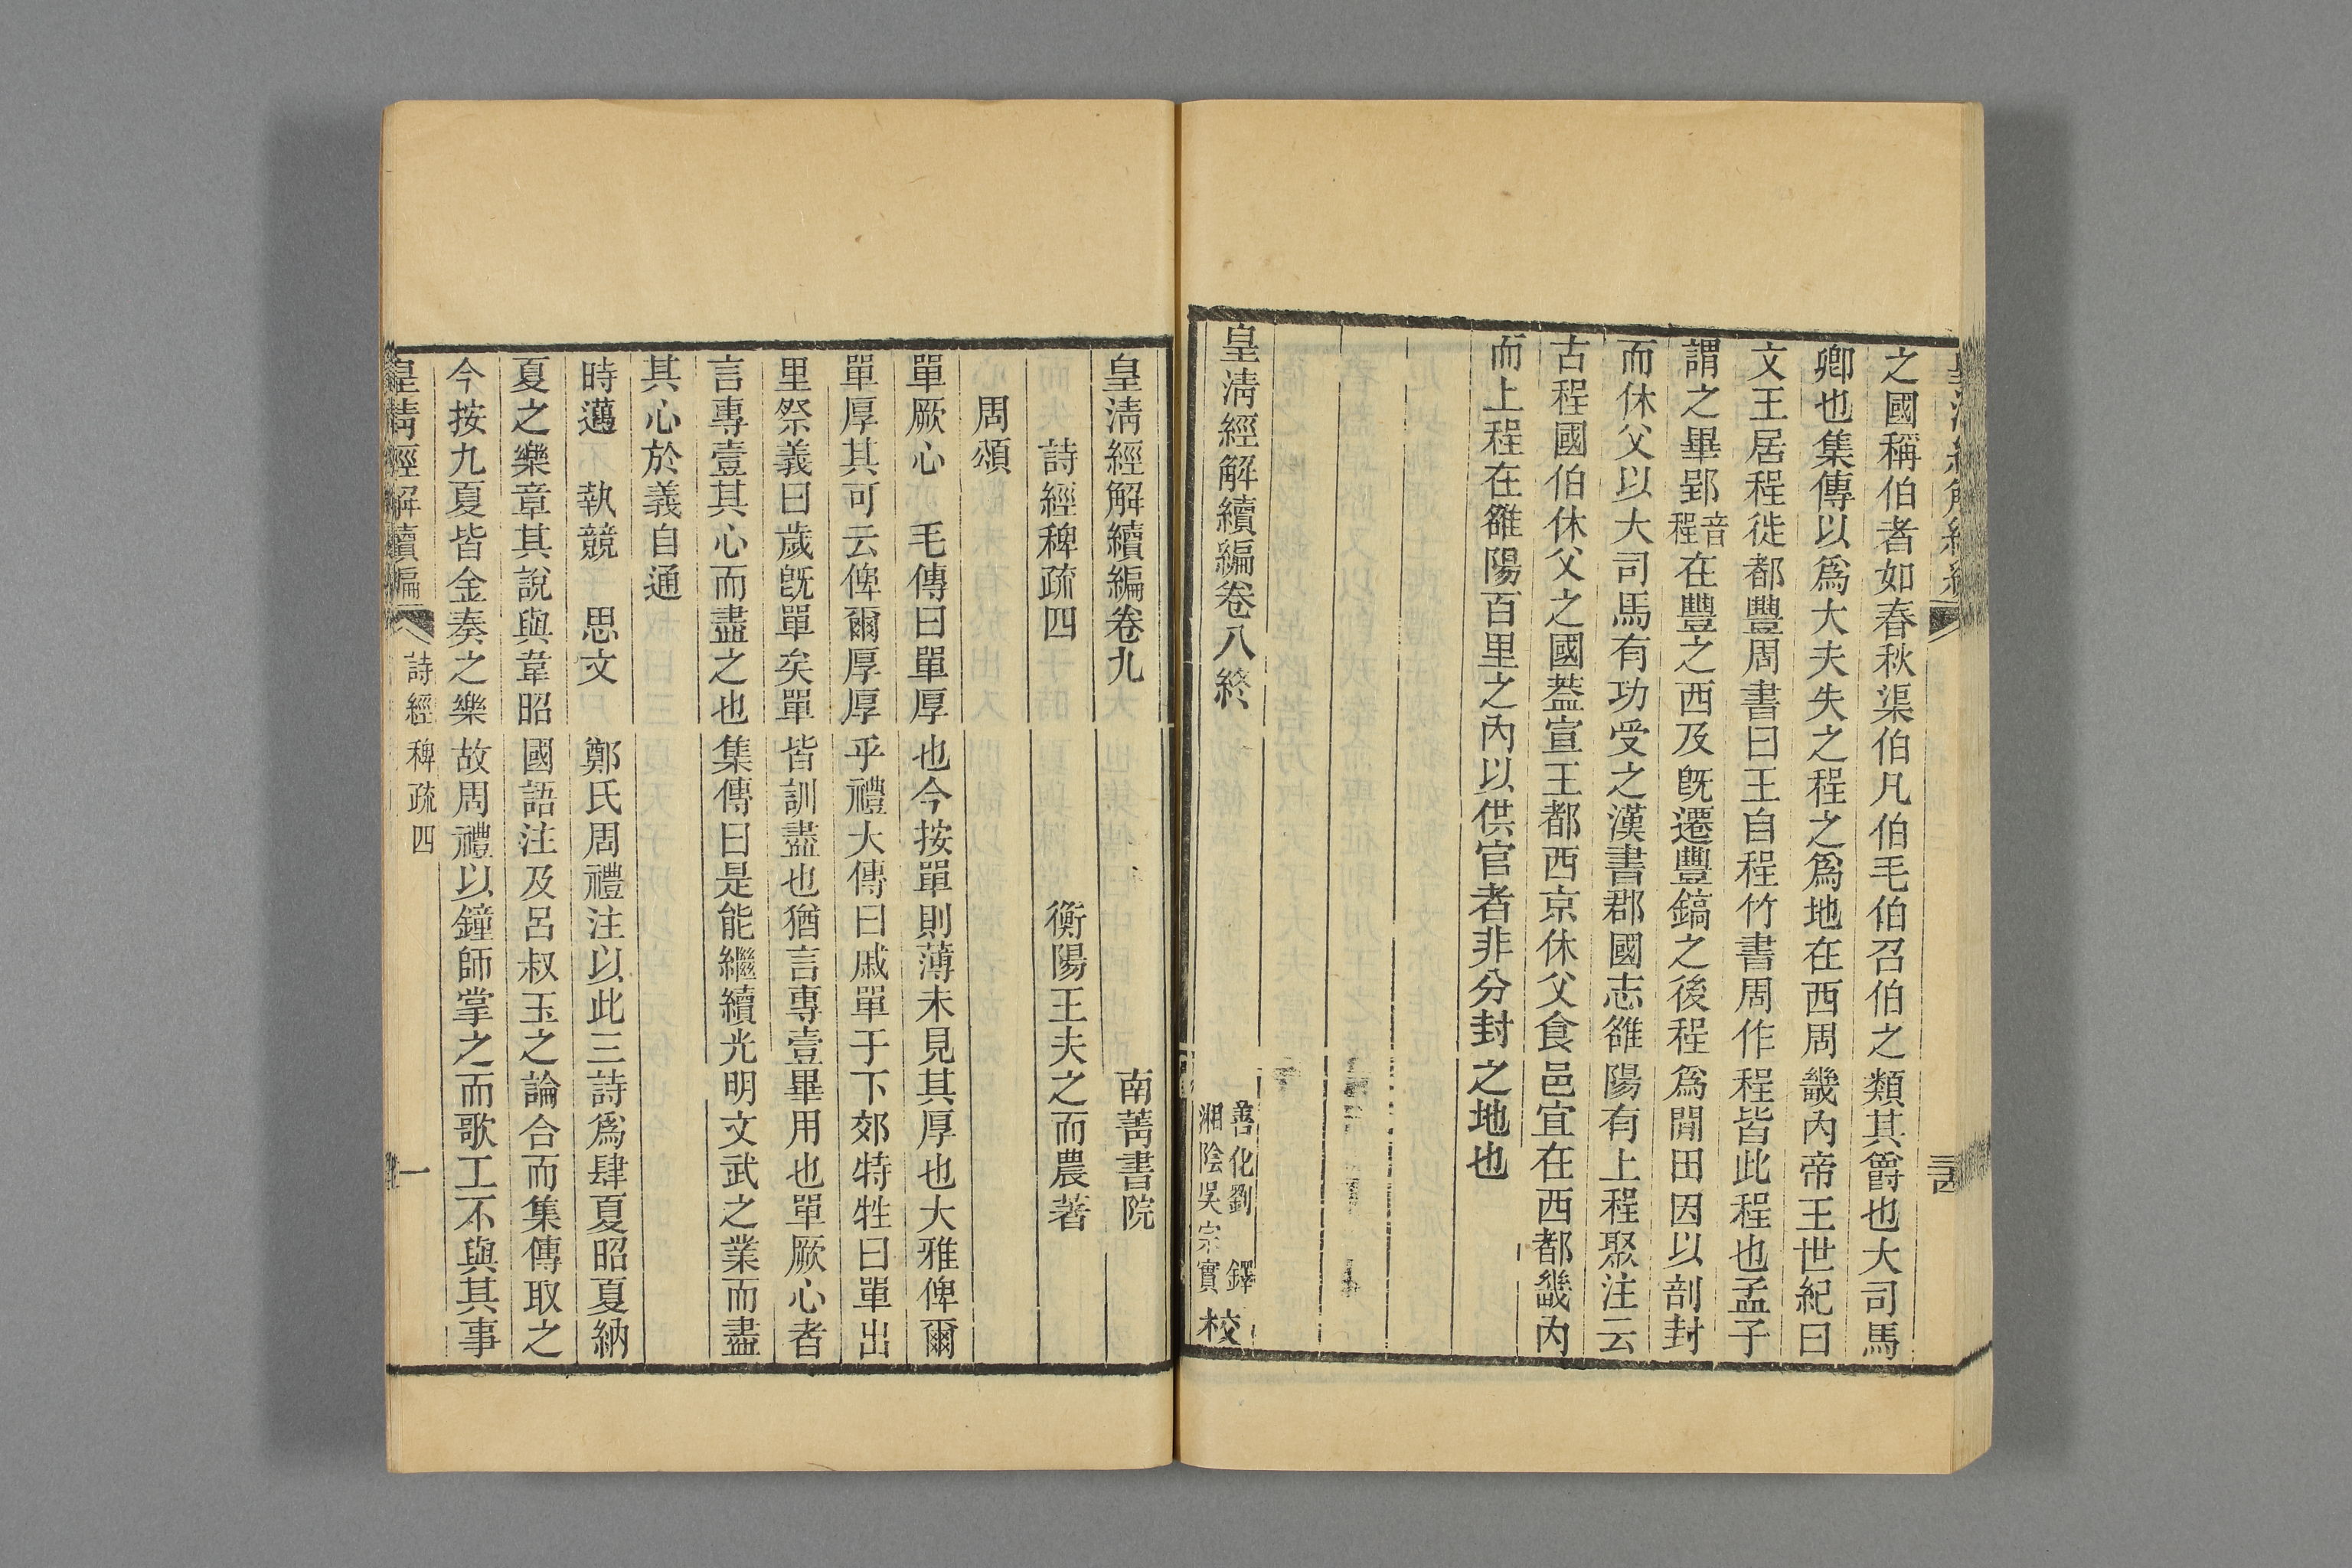 之國稱伯者如春秋渠伯凡伯毛伯召伯之類其爵也大司馬
卿也集傳以爲大夫失之程之爲地在西周畿內帝王世紀曰
文王居程徙都豐周書曰王自程竹書周作程皆此程也孟子
謂之畢郢音程在豐之西及旣遷豐鎬之後程爲閒田因以剖封
而休父以大司馬有功受之漢書郡國志雒陽有上程聚注云
古程國伯休父之國葢宣王都西京休父食邑宜在西都畿內
而上程在雒陽百里之內以供官者非分封之地也
皇淸經解續編卷八終
善化劉鐸
湘陰吳宗實
校
皇淸經解續編卷九 南菁書院
詩經稗疏四 衡陽王夫之而農著
周頌
單厥心 毛傳曰單厚也今按單則薄未見其厚也大雅俾爾
單厚其可云俾爾厚厚乎禮大傳曰戚單于下郊特牲曰單出
里祭義曰歲旣單矣單皆訓盡也猶言專壹畢用也單厥心者
言專壹其心而盡之也集傳曰是能繼續光明文武之業而盡
其心於義自通
時邁 執競 思文 鄭氏周禮注以此三詩爲肆夏昭夏納
夏之樂章其說與韋昭國語注及呂叔玉之論合而集傳取之
今按九夏皆金奏之樂故周禮以鐘師掌之而歌工不與其事
皇淸經解續編 詩經稗疏四 一